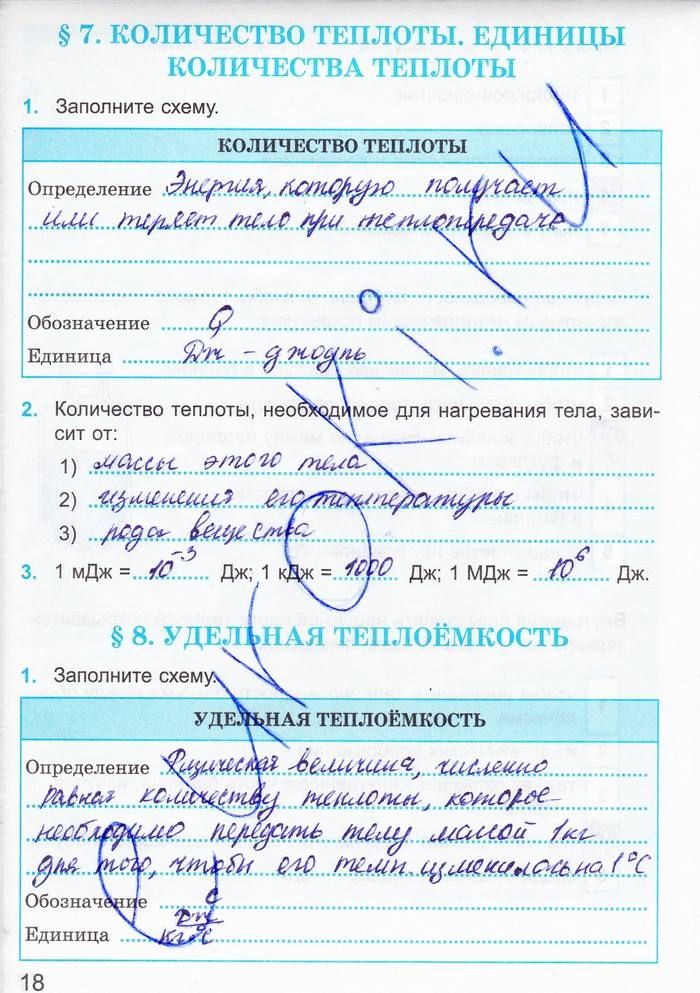 § 7. КОЛИЧЕСТВО ТЕПЛОТЫ. ЕДИНИЦЫ
КОЛИЧЕСТВА ТЕПЛОТЫ
1. Заполните схему.
КОЛИЧЕСТВО ТЕПЛОТЫ
Определение Энергия, которую получает
или теряет тело при теплопередаче
Обозначение Q
Единица Дж - джоуль
2. Количество теплоты, необходимое для нагревания тела, зави-
сит от:
1) массы этого тела
2) изменения его температуры
3) рода вещества
3. 1 мДж = 10⁻³ Дж; 1 кДж = 1000 Дж; 1 МДж = 10⁶ Дж.
§ 8. УДЕЛЬНАЯ ТЕПЛОЁМКОСТЬ
1. Заполните схему.
УДЕЛЬНАЯ ТЕПЛОЁМКОСТЬ
Определение Физическая величина, численно
равная количеству теплоты, которое
необходимо передать телу массой 1 кг
для того, чтобы его темп. изменилась на 1°C
Обозначение c
Единица Дж/кг·°C
18